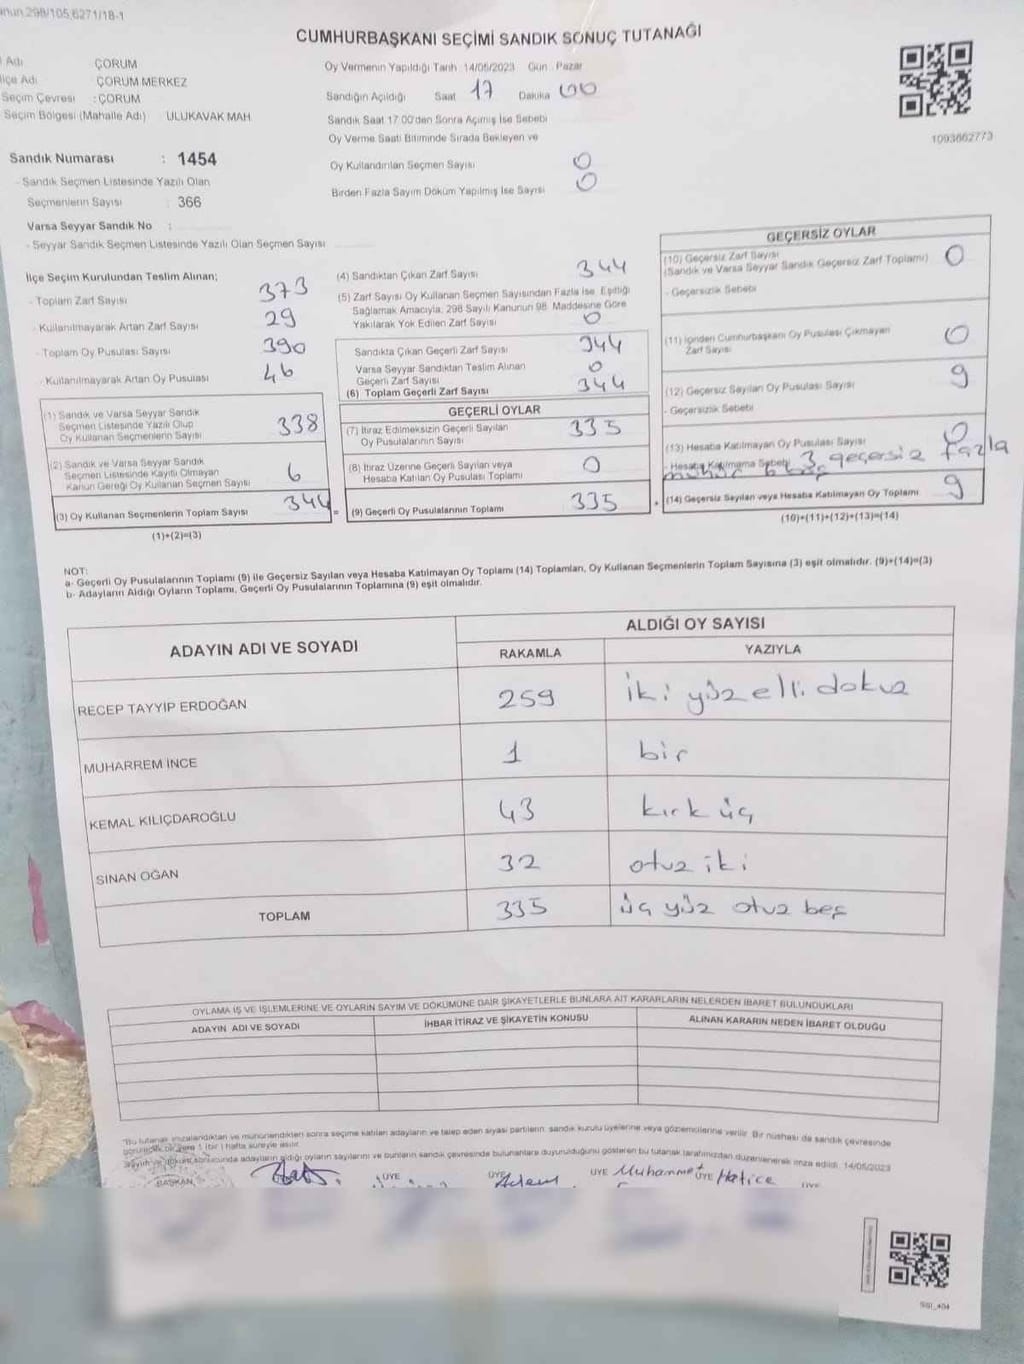 298/105,6271/18-1
CUMHURBAŞKANI SEÇİMİ SANDIK SONUÇ TUTANAĞI
Adı ÇORUM
İlçe Adı ÇORUM MERKEZ
Seçim Çevresi : ÇORUM
Seçim Bölgesi (Mahalle Adı) ULUKAVAK MAH.
Sandık Numarası : 1454
- Sandık Seçmen Listesinde Yazılı Olan
Seçmenlerin Sayısı 366
Varsa Seyyar Sandık No :
- Seyyar Sandık Seçmen Listesinde Yazılı Olan Seçmen Sayısı
Oy Vermenin Yapıldığı Tarih 14/05/2023 Gün : Pazar
Sandığın Açıldığı Saat 17 Dakika 00
Sandık Saat 17.00'den Sonra Açılmış İse Sebebi
Oy Verme Saati Bitiminde Sırada Bekleyen ve
Oy Kullandırılan Seçmen Sayısı 0
Birden Fazla Sayım Döküm Yapılmış İse Sayısı 0
1093662773
İlçe Seçim Kurulundan Teslim Alınan;
- Toplam Zarf Sayısı 373
- Kullanılmayarak Artan Zarf Sayısı 29
- Toplam Oy Pusulası Sayısı 390
- Kullanılmayarak Artan Oy Pusulası 46
(1) Sandık ve Varsa Seyyar Sandık
Seçmen Listesinde Yazılı Olup
Oy Kullanan Seçmenlerin Sayısı 338
(2) Sandık ve Varsa Seyyar Sandık
Seçmen Listesinde Kayıtlı Olmayan
Kanun Gereği Oy Kullanan Seçmen Sayısı 6
(3) Oy Kullanan Seçmenlerin Toplam Sayısı 344
(1)+(2)=(3)
(4) Sandıktan Çıkan Zarf Sayısı 344
(5) Zarf Sayısı Oy Kullanan Seçmen Sayısından Fazla İse, Eşitliği
Sağlamak Amacıyla, 298 Sayılı Kanunun 98. Maddesine Göre
Yakılarak Yok Edilen Zarf Sayısı 0
Sandıkta Çıkan Geçerli Zarf Sayısı 344
Varsa Seyyar Sandıktan Teslim Alınan
Geçerli Zarf Sayısı 0
(6) Toplam Geçerli Zarf Sayısı 344
GEÇERLİ OYLAR
(7) İtiraz Edilmeksizin Geçerli Sayılan
Oy Pusulalarının Sayısı 335
(8) İtiraz Üzerine Geçerli Sayılan veya
Hesaba Katılan Oy Pusulası Toplamı 0
= (9) Geçerli Oy Pusulalarının Toplamı 335 +
GEÇERSİZ OYLAR
(10) Geçersiz Zarf Sayısı 0
(Sandık ve Varsa Seyyar Sandık Geçersiz Zarf Toplamı)
- Geçersizlik Sebebi
(11) İçinden Cumhurbaşkanı Oy Pusulası Çıkmayan
Zarf Sayısı 0
(12) Geçersiz Sayılan Oy Pusulası Sayısı 9
- Geçersizlik Sebebi
(13) Hesaba Katılmayan Oy Pusulası Sayısı 0
- Hesaba Katılmama Sebebi 3 geçersiz fazla
(14) Geçersiz Sayılan veya Hesaba Katılmayan Oy Toplamı 9
(10)+(11)+(12)+(13)=(14)
NOT:
a- Geçerli Oy Pusulalarının Toplamı (9) ile Geçersiz Sayılan veya Hesaba Katılmayan Oy Toplamı (14) Toplamları, Oy Kullanan Seçmenlerin Toplam Sayısına (3) eşit olmalıdır. (9)+(14)=(3)
b- Adayların Aldığı Oyların Toplamı, Geçerli Oy Pusulalarının Toplamına (9) eşit olmalıdır.
ADAYIN ADI VE SOYADI ALDIĞI OY SAYISI
RAKAMLA YAZIYLA
RECEP TAYYIP ERDOĞAN 259 iki yüz elli dokuz
MUHARREM İNCE 1 bir
KEMAL KILIÇDAROĞLU 43 kırk üç
SİNAN OĞAN 32 otuz iki
TOPLAM 335 üç yüz otuz beş
OYLAMA İŞ VE İŞLEMLERİNE VE OYLARIN SAYIM VE DÖKÜMÜNE DAİR ŞİKAYETLERLE BUNLARA AİT KARARLARIN NELERDEN İBARET BULUNDUKLARI
ADAYIN ADI VE SOYADI İHBAR İTİRAZ VE ŞİKAYETİN KONUSU ALINAN KARARIN NEDEN İBARET OLDUĞU
"Bu tutanak imzalandıktan ve mühürlendikten sonra seçime katılan adayların ve talep eden siyasi partilerin sandık kurulu üyelerine veya gözlemcilerine verilir. Bir nüshası da sandık çevresinde
görülecek bir yere 1 (bir) hafta süreyle asılır.
Sayım ve döküm sonucunda adayların aldığı oyların sayılarını ve bunların sandık çevresinde bulunanlara duyurulduğunu gösteren bu tutanak tarafımızdan düzenlenerek imza edildi. 14/05/2023
BAŞKAN ÜYE ÜYE Adem ÜYE Muhammet ÜYE Hatice ÜYE